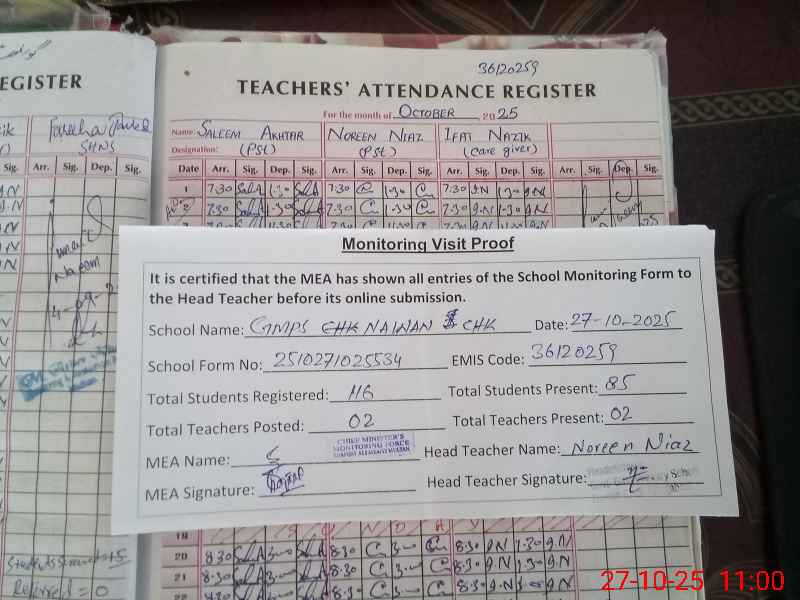 EGISTER
Fareeha
SHNS
Sig. Arr. Sig. Dep. Sig.
36120259
TEACHERS' ATTENDANCE REGISTER
For the month of OCTOBER 2025
Name: SALEEM AKHTAR NOREEN NIAZ IFAT NAZIK
Designation: (PSt) (PSt) (care giver)
Date Arr. Sig. Dep. Sig. Arr. Sig. Dep. Sig. Arr. Sig. Dep. Sig. Arr. Sig. Dep. Sig.
1 7:30 SalA 1:30 SalA 7:30 1:30 7:30 I.N 1:30 I.N
2 7:30 SalA 1:30 SalA 7:30 1:30 7:30 I.N 1:30 I.N
Naeem
Monitoring Visit Proof
It is certified that the MEA has shown all entries of the School Monitoring Form to
the Head Teacher before its online submission.
School Name: GMPS CHK NAIWAN CHK Date: 27-10-2025
School Form No: 2510271025534 EMIS Code: 36120259
Total Students Registered: 116 Total Students Present: 85
Total Teachers Posted: 02 Total Teachers Present: 02
MEA Name: CHIEF MINISTER'S
MONITORING FORCE
Head Teacher Name: Noreen Niaz
MEA Signature: Head Teacher Signature:
19 S U N D A Y
20 8:30 SalA 3:00 SalA 8:30 3:00 8:30 I.N 1:30 I.N
21 8:30 SalA 3:00 SalA 8:30 3:00 8:30 I.N I.N
22
Referred = 0
27-10-25 11:00